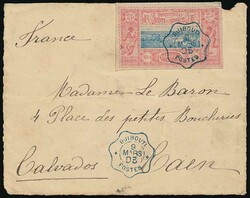 France
DJIBOUTI
8
MARS
03
POSTES
Madame Le Baron
4 Place des petites Boucheries
Calvados Caen
DJIBOUTI
8
MARS
03
POSTES